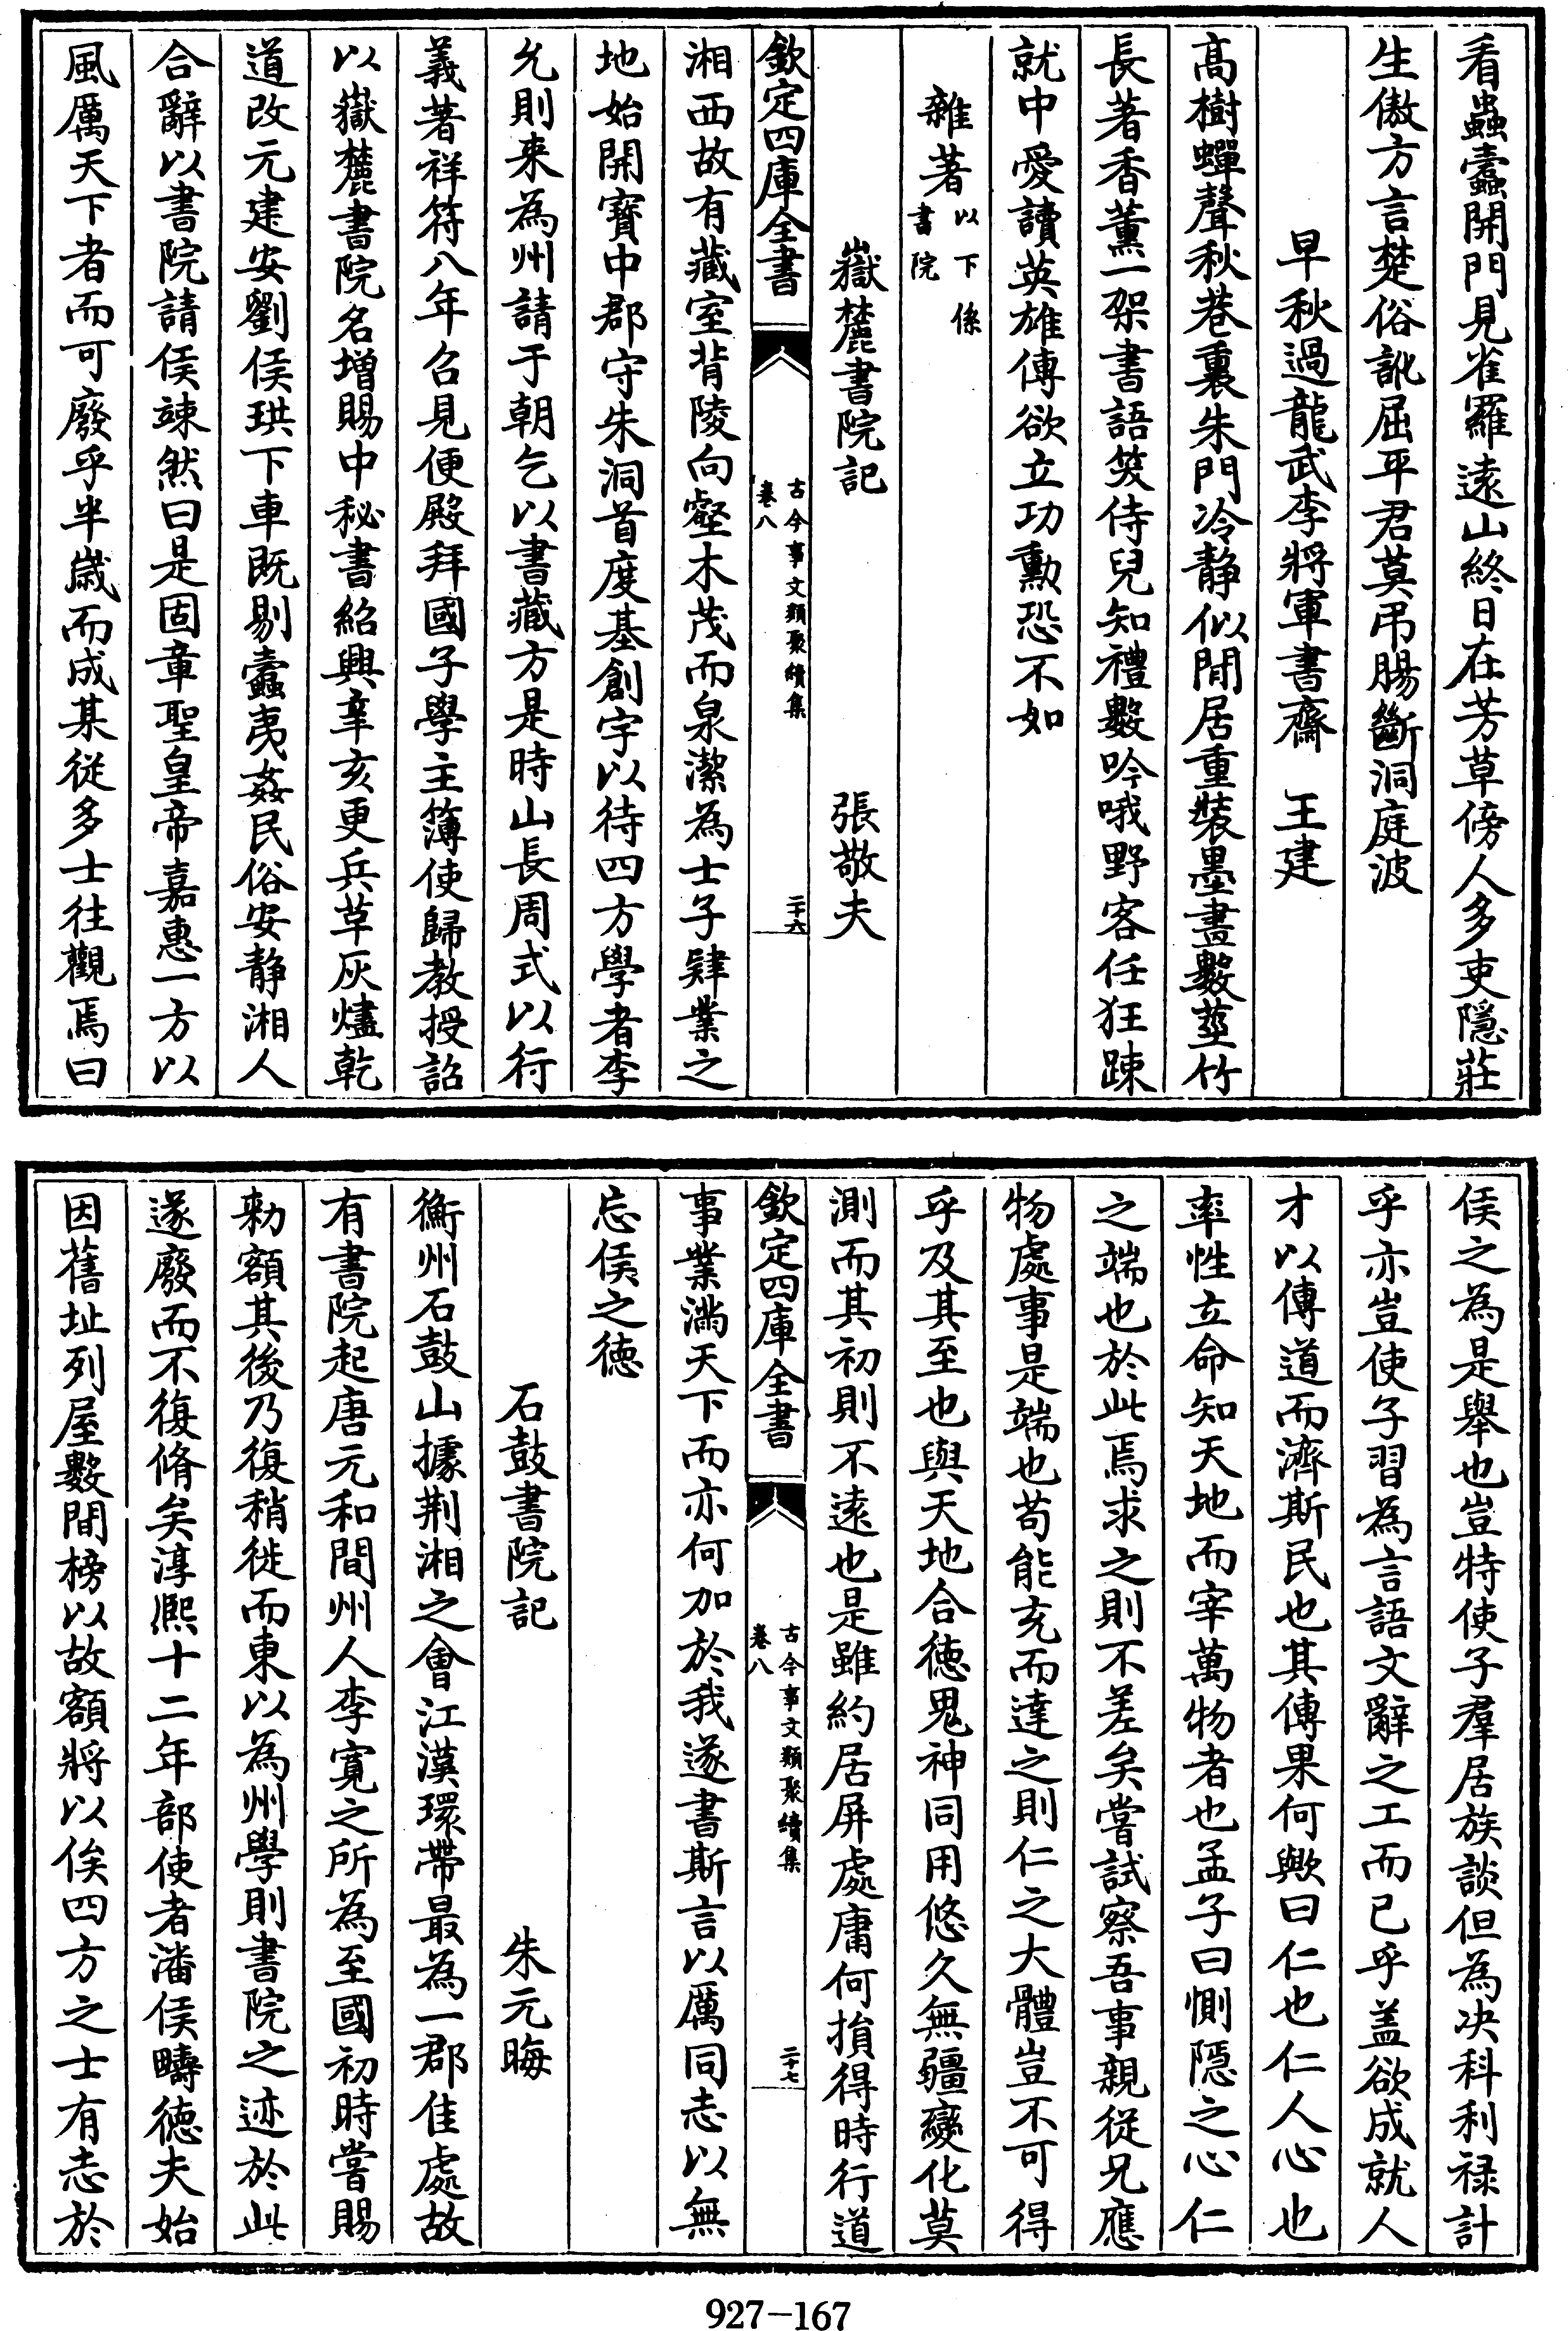 看蟲蠹開門見雀羅遠山終日在芳草傍人多吏隱莊
生傲方言楚俗訛屈平君莫弔腸斷洞庭波
早秋過龍武李將軍書齋　王建
髙樹蟬聲秋巷裏朱門冷静似閒居重裝墨畫數莖竹
長著香薰一架書語笑侍兒知禮數吟哦野客任狂踈
就中愛讀英雄傳欲立功勲恐不如
雜著以下係書院
嶽麓書院記　張敬夫
欽定四庫全書　古今事文類聚續集　卷八　二十六
湘西故有藏室背陵向壑木茂而泉潔為士子肄業之
地始開寳中郡守朱洞首度基創宇以待四方學者李
允則來為州請于朝乞以書藏方是時山長周式以行
義著祥符八年召見便殿拜國子學主簿使歸教授詔
以嶽麓書院名増賜中秘書紹興辛亥更兵草灰燼乾
道改元建安劉侯珙下車既剔蠹夷姦民俗安静湘人
合辭以書院請侯竦然曰是固章聖皇帝嘉惠一方以
風厲天下者而可廢乎半歲而成某從多士往觀焉曰
侯之為是舉也豈特使子羣居族談但為决科利禄計
乎亦豈使子習為言語文辭之工而已乎盖欲成就人
才以傳道而濟斯民也其傳果何歟曰仁也仁人心也
率性立命知天地而宰萬物者也孟子曰惻隱之心仁
之端也於此焉求之則不差矣嘗試察吾事親從兄應
物處事是端也苟能充而達之則仁之大體豈不可得
乎及其至也與天地合徳鬼神同用悠久無疆變化莫
測而其初則不遠也是雖約居屏處庸何損得時行道
欽定四庫全書　古今事文類聚續集　卷八　二十七
事業滿天下而亦何加於我遂書斯言以厲同志以無
忘侯之徳
石鼓書院記　朱元晦
衡州石鼓山據荆湘之會江漢環帶最為一郡佳處故
有書院起唐元和間州人李寛之所為至國初時嘗賜
勅額其後乃復稍徙而東以為州學則書院之迹於此
遂廢而不復脩矣淳熙十二年部使者潘侯疇徳夫始
因舊址列屋數間榜以故額將以俟四方之士有志於
927-167